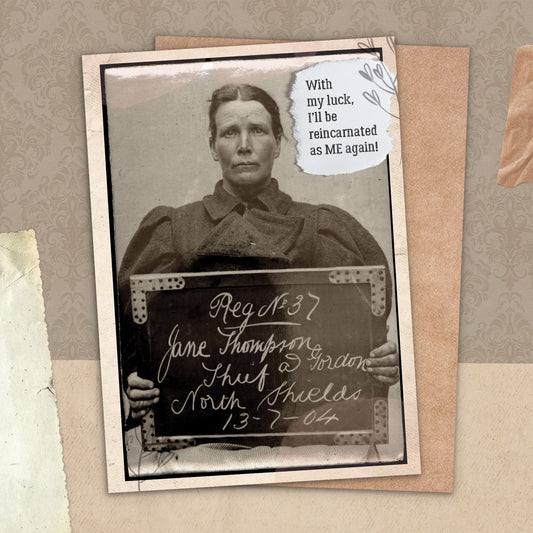 With
my luck,
I'll be
reincarnated
as ME again!
Reg No. 37
Jane Thompson
a Gordon
Thief
North Shields
13-7-04